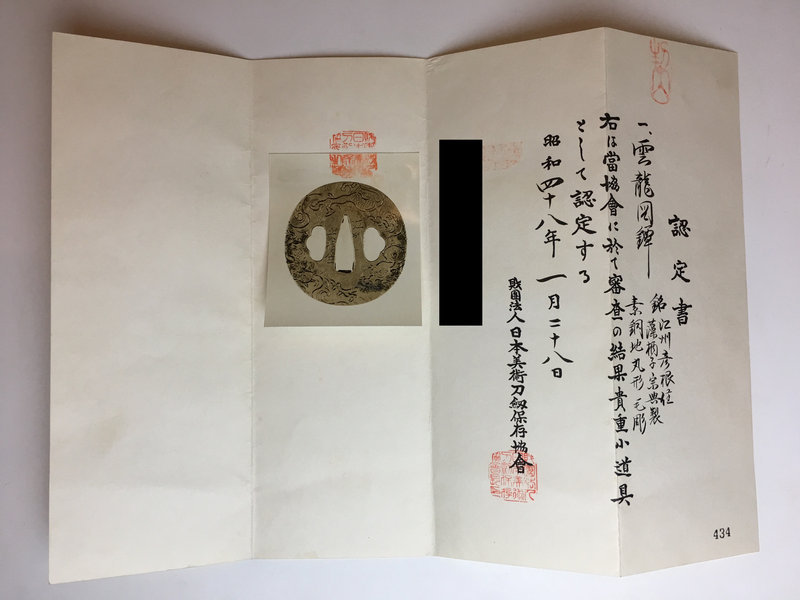 認定書
一、雲龍図鐔
銘 江州彦根住
藻柄子宗典製
素銅地丸形毛彫
右は當協會に於て審査の結果貴重小道具
として認定する
昭和四十八年一月二十八日
財團法人日本美術刀劍保存協會
434